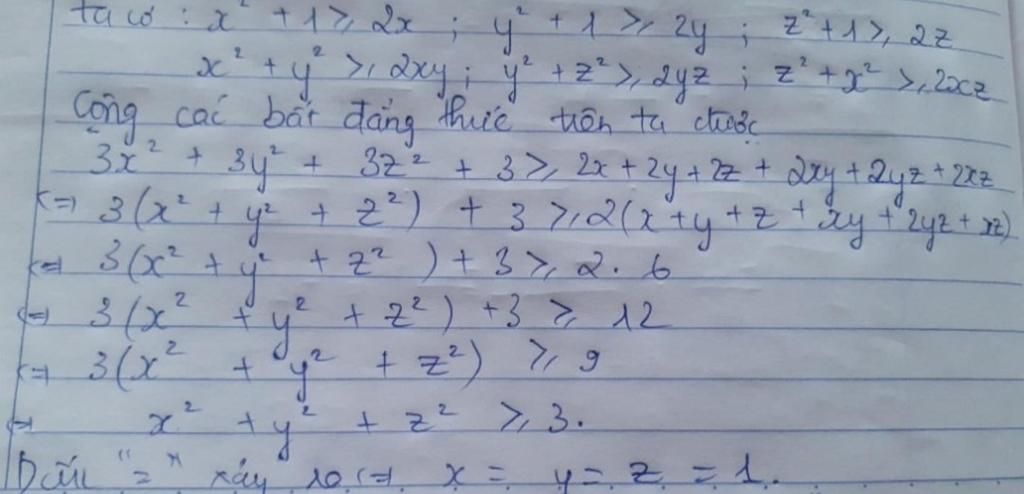 ta có : x² + 1 ⩾ 2x ; y² + 1 ⩾ 2y ; z² + 1 ⩾ 2z
x² + y² ⩾ 2xy ; y² + z² ⩾ 2yz ; z² + x² ⩾ 2xz
Cộng các bất đẳng thức trên ta được
3x² + 3y² + 3z² + 3 ⩾ 2x + 2y + 2z + 2xy + 2yz + 2xz
<=> 3(x² + y² + z²) + 3 ⩾ 2(x + y + z + xy + 2yz + xz)
<=> 3(x² + y² + z²) + 3 ⩾ 2. 6
<=> 3(x² + y² + z²) + 3 ⩾ 12
<=> 3(x² + y² + z²) ⩾ 9
<=> x² + y² + z² ⩾ 3.
Dấu "=" xảy ra <=> x = y = z = 1.